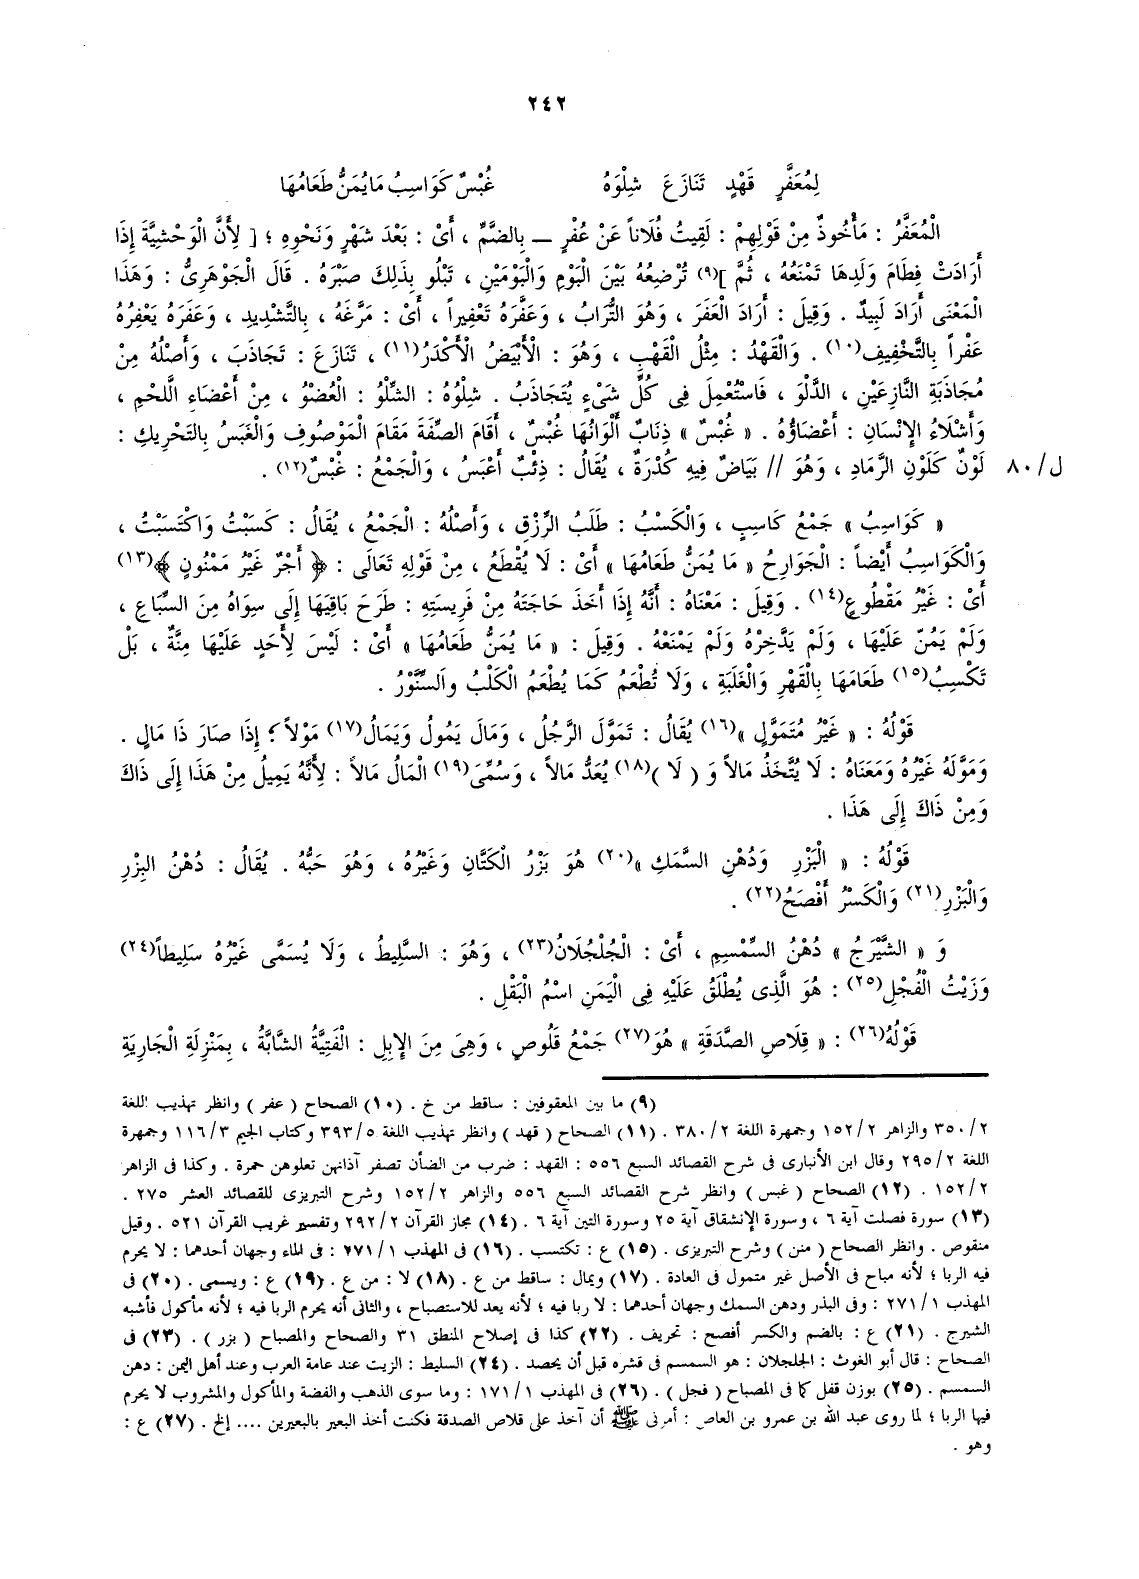 ٢٤٢
لِمُعَفَّرٍ قَهْدٍ تَنَازَعَ شِلْوَهُ غُبْسٌ كَوَاسِبُ مَا يُمَنُّ طَعَامُهَا
الْمُعَفَّرُ : مَأْخُوذٌ مِنْ قَوْلِهِمْ : لَقِيتُ فُلَاناً عَنْ عُفْرٍ ــ بِالضَّمِّ ، أَىْ : بَعْدَ شَهْرٍ وَنَحْوِهِ ؛ [ لِأَنَّ الْوَحْشِيَّةَ إِذَا
أَرَادَتْ فِطَامَ وَلَدِهَا تَمْنَعُهُ ، ثُمَّ ](٩) تُرْضِعُهُ بَيْنَ الْيَوْمِ وَالْيَوْمَيْنِ ، تَبْلُو بِذَلِكَ صَبْرَهُ . قَالَ الْجَوْهَرِىُّ : وَهَذَا
الْمَعْنَى أَرَادَ لَبِيدٌ . وَقِيلَ : أَرَادَ الْعَفَرَ ، وَهُوَ التُّرَابُ ، وَعَفَّرَهُ تَعْفِيراً ، أَىْ : مَرَّغَهُ ، بِالتَّشْدِيدِ ، وَعَفَرَهُ يَعْفِرُهُ
عَفْراً بِالتَّخْفِيفِ(١٠) . وَالْقَهْدُ : مِثْلُ الْقَهْبِ ، وَهُوَ : الْأَبْيَضُ الْأَكْدَرُ(١١) ، تَنَازَعَ : تَجَاذَبَ ، وَأَصْلُهُ مِنْ
مُجَاذَبَةِ النَّازِعَيْنِ ، الدَّلْوَ ، فَاسْتُعْمِلَ فِى كُلِّ شَىْءٍ يُتَجَاذَبُ . شِلْوُهُ : الشِّلْوُ : الْعُضْوُ ، مِنْ أَعْضَاءِ الَّلحْمِ ،
وَأَشْلَاءُ الإِنْسَانِ : أَعْضَاؤُهُ . « غُبْسٌ » ذِئَابٌ أَلْوَانُهَا غُبْسٌ ، أَقَامَ الصِّفَةَ مَقَامَ الْمَوْصُوفِ وَالْغَبَسُ بِالتَّحْرِيكِ :
ل/٨٠ لَوْنٌ كَلَوْنِ الرَّمَادِ ، وَهُوَ // بَيَاضٌ فِيهِ كُدْرَةٌ ، يُقَالُ : ذِئْبٌ أَغْبَسُ ، وَالْجَمْعُ : غُبْسٌ(١٢) .
« كَوَاسِبُ » جَمْعُ كَاسِبٍ ، وَالْكَسْبُ : طَلَبُ الرِّزْقِ ، وَأَصْلُهُ : الْجَمْعُ ، يُقَالُ : كَسَبْتُ وَاكْتَسَبْتُ ،
وَالْكَوَاسِبُ أَيْضاً : الْجَوَارِحُ « مَا يُمَنُّ طَعَامُهَا » أَىْ : لَا يُقْطَعُ ، مِنْ قَوْلِهِ تَعَالَى : ﴿ أَجْرٌ غَيْرُ مَمْنُونٍ ﴾(١٣)
أَىْ : غَيْرُ مَقْطُوعٍ(١٤) . وَقِيلَ : مَعْنَاهُ : أَنَّهُ إِذَا أَخَذَ حَاجَتَهُ مِنْ فَرِيسَتِهِ : طَرَحَ بَاقِيَهَا إِلَى سِوَاهُ مِنَ السِّبَاعِ ،
وَلَمْ يَمُنّ عَلَيْهَا ، وَلَمْ يَدَّخِرْهُ وَلَمْ يَمْنَعْهُ . وَقِيلَ : « مَا يُمَنُّ طَعَامُهَا » أَىْ : لَيْسَ لِأَحَدٍ عَلَيْهَا مِنَّةٌ ، بَلْ
تَكْسِبُ(١٥) طَعَامَهَا بِالْقَهْرِ وَالْغَلَبَةِ ، وَلَا تُطْعَمُ كَمَا يُطْعَمُ الْكَلْبُ والَسِّنَّوْرُ .
قَوْلُهُ : « غَيْرُ مُتَمَوَّلٍ »(١٦) يُقَالُ : تَمَوَّلَ الرَّجُلُ ، وَمَالَ يَمُولُ وَيَمَالُ(١٧) مَوْلاً ؛ إِذَا صَارَ ذَا مَالٍ .
وَمَوَّلَهُ غَيْرُهُ وَمَعَنَاهُ : لَا يُتَّخَذُ مَالاً وَ ( لَا )(١٨) يُعَدُّ مَالاً ، وَسُمِّىَ(١٩) الْمَالُ مَالاً : لِأَنَّهُ يَمِيلُ مِنْ هَذَا إِلَى ذَاكَ
وَمِنْ ذَاكَ إِلَى هَذَا .
قَوْلُهُ : « الْبَزْرِ وَدُهْنِ السَّمَكِ »(٢٠) هُوَ بَزْرُ الْكَتَّانِ وَغَيْرُهُ ، وَهُوَ حَبُّهُ . يُقَالُ : دُهْنُ البِزْرِ
وَالْبَزْرِ(٢١) وَالْكَسْرُ أَفْصَحُ(٢٢) .
وَ « الشَّيْرَجُ » دُهْنُ السِّمْسِمِ ، أَىْ : الْجُلْجُلَانُ(٢٣) ، وَهُوَ : السَّلِيطُ ، وَلَا يُسَمَّى غَيْرُهُ سَلِيطاً(٢٤)
وَزَيْتُ الْفُجْلِ(٢٥) : هُوَ الَّذِى يُطْلَقُ عَلَيْهِ فِى الْيَمَنِ اسْمُ الْبَقْلِ .
قَوْلُهُ(٢٦) : « قِلَاصِ الصَّدَقَةِ » هُوَ(٢٧) جَمْعُ قَلُوصٍ ، وَهِىَ مِنَ الإِبِلِ : الْفَتِيَّةُ الشَّابَّةُ ، بِمَنْزِلَةِ الْجَارِيَةِ
(٩) ما بين المعقوفين : ساقط من خ . (١٠) الصحاح ( عفر ) وانظر تهذيب اللغة
٢/ ٣٥٠ والزاهر ٢/ ١٥٢ وجمهرة اللغة ٢/ ٣٨٠ . (١١) الصحاح ( قهد ) وانظر تهذيب اللغة ٥/ ٣٩٣ وكتاب الجيم ٣/ ١١٦ وجمهرة
اللغة ٢/ ٢٩٥ وقال ابن الأنبارى فى شرح القصائد السبع ٥٥٦ : القهد : ضرب من الضأن تصفر آذانهن تعلوهن حمرة . وكذا فى الزاهر
٢/ ١٥٢ . (١٢) الصحاح ( غبس ) وانظر شرح القصائد السبع ٥٥٦ والزاهر ٢/ ١٥٢ وشرح التبريزى للقصائد العشر ٢٧٥ .
(١٣) سورة فصلت آية ٦ ، وسورة الإنشقاق آية ٢٥ وسورة التين آية ٦ . (١٤) مجاز القرآن ٢/ ٢٩٢ وتفسير غريب القرآن ٥٢١ . وقيل
منقوص . وانظر الصحاح ( منن ) وشرح التبريزى . (١٥) ع : تكتسب . (١٦) فى المهذب ١/ ٢٧١ : فى الماء وجهان أحدهما : لا يحرم
فيه الربا ؛ لأنه مباح فى الأصل غير متمول فى العادة . (١٧) ويمال : ساقط من ع . (١٨) لا : من ع . (١٩) ع : ويسمى . (٢٠) فى
المهذب ١/ ٢٧١ : وفى البذر ودهن السمك وجهان أحدهما : لا ربا فيه ؛ لأنه يعد للاستصباح ، والثانى أنه يحرم الربا فيه ؛ لأنه مأكول فأشبه
الشيرج . (٢١) ع : بالضم والكسر أفصح : تحريف . (٢٢) كذا فى إصلاح المنطق ٣١ والصحاح والمصباح ( بزر ) . (٢٣) فى
الصحاح : قال أبو الغوث : الجلجلان : هو السمسم فى قشره قبل أن يحصد . (٢٤) السليط : الزيت عند عامة العرب وعند أهل اليمن : دهن
السمسم . (٢٥) بوزن قفل كما فى المصباح ( فجل ) . (٢٦) فى المهذب ١/ ١٧١ : وما سوى الذهب والفضة والمأكول والمشروب لا يحرم
فيها الربا ؛ لما روى عبد الله بن عمرو بن العاص : أمرنى ﷺ أن آخذ على قلاص الصدقة فكنت أخذ البعير بالبعيرين .... إلخ . (٢٧) ع :
وهو .